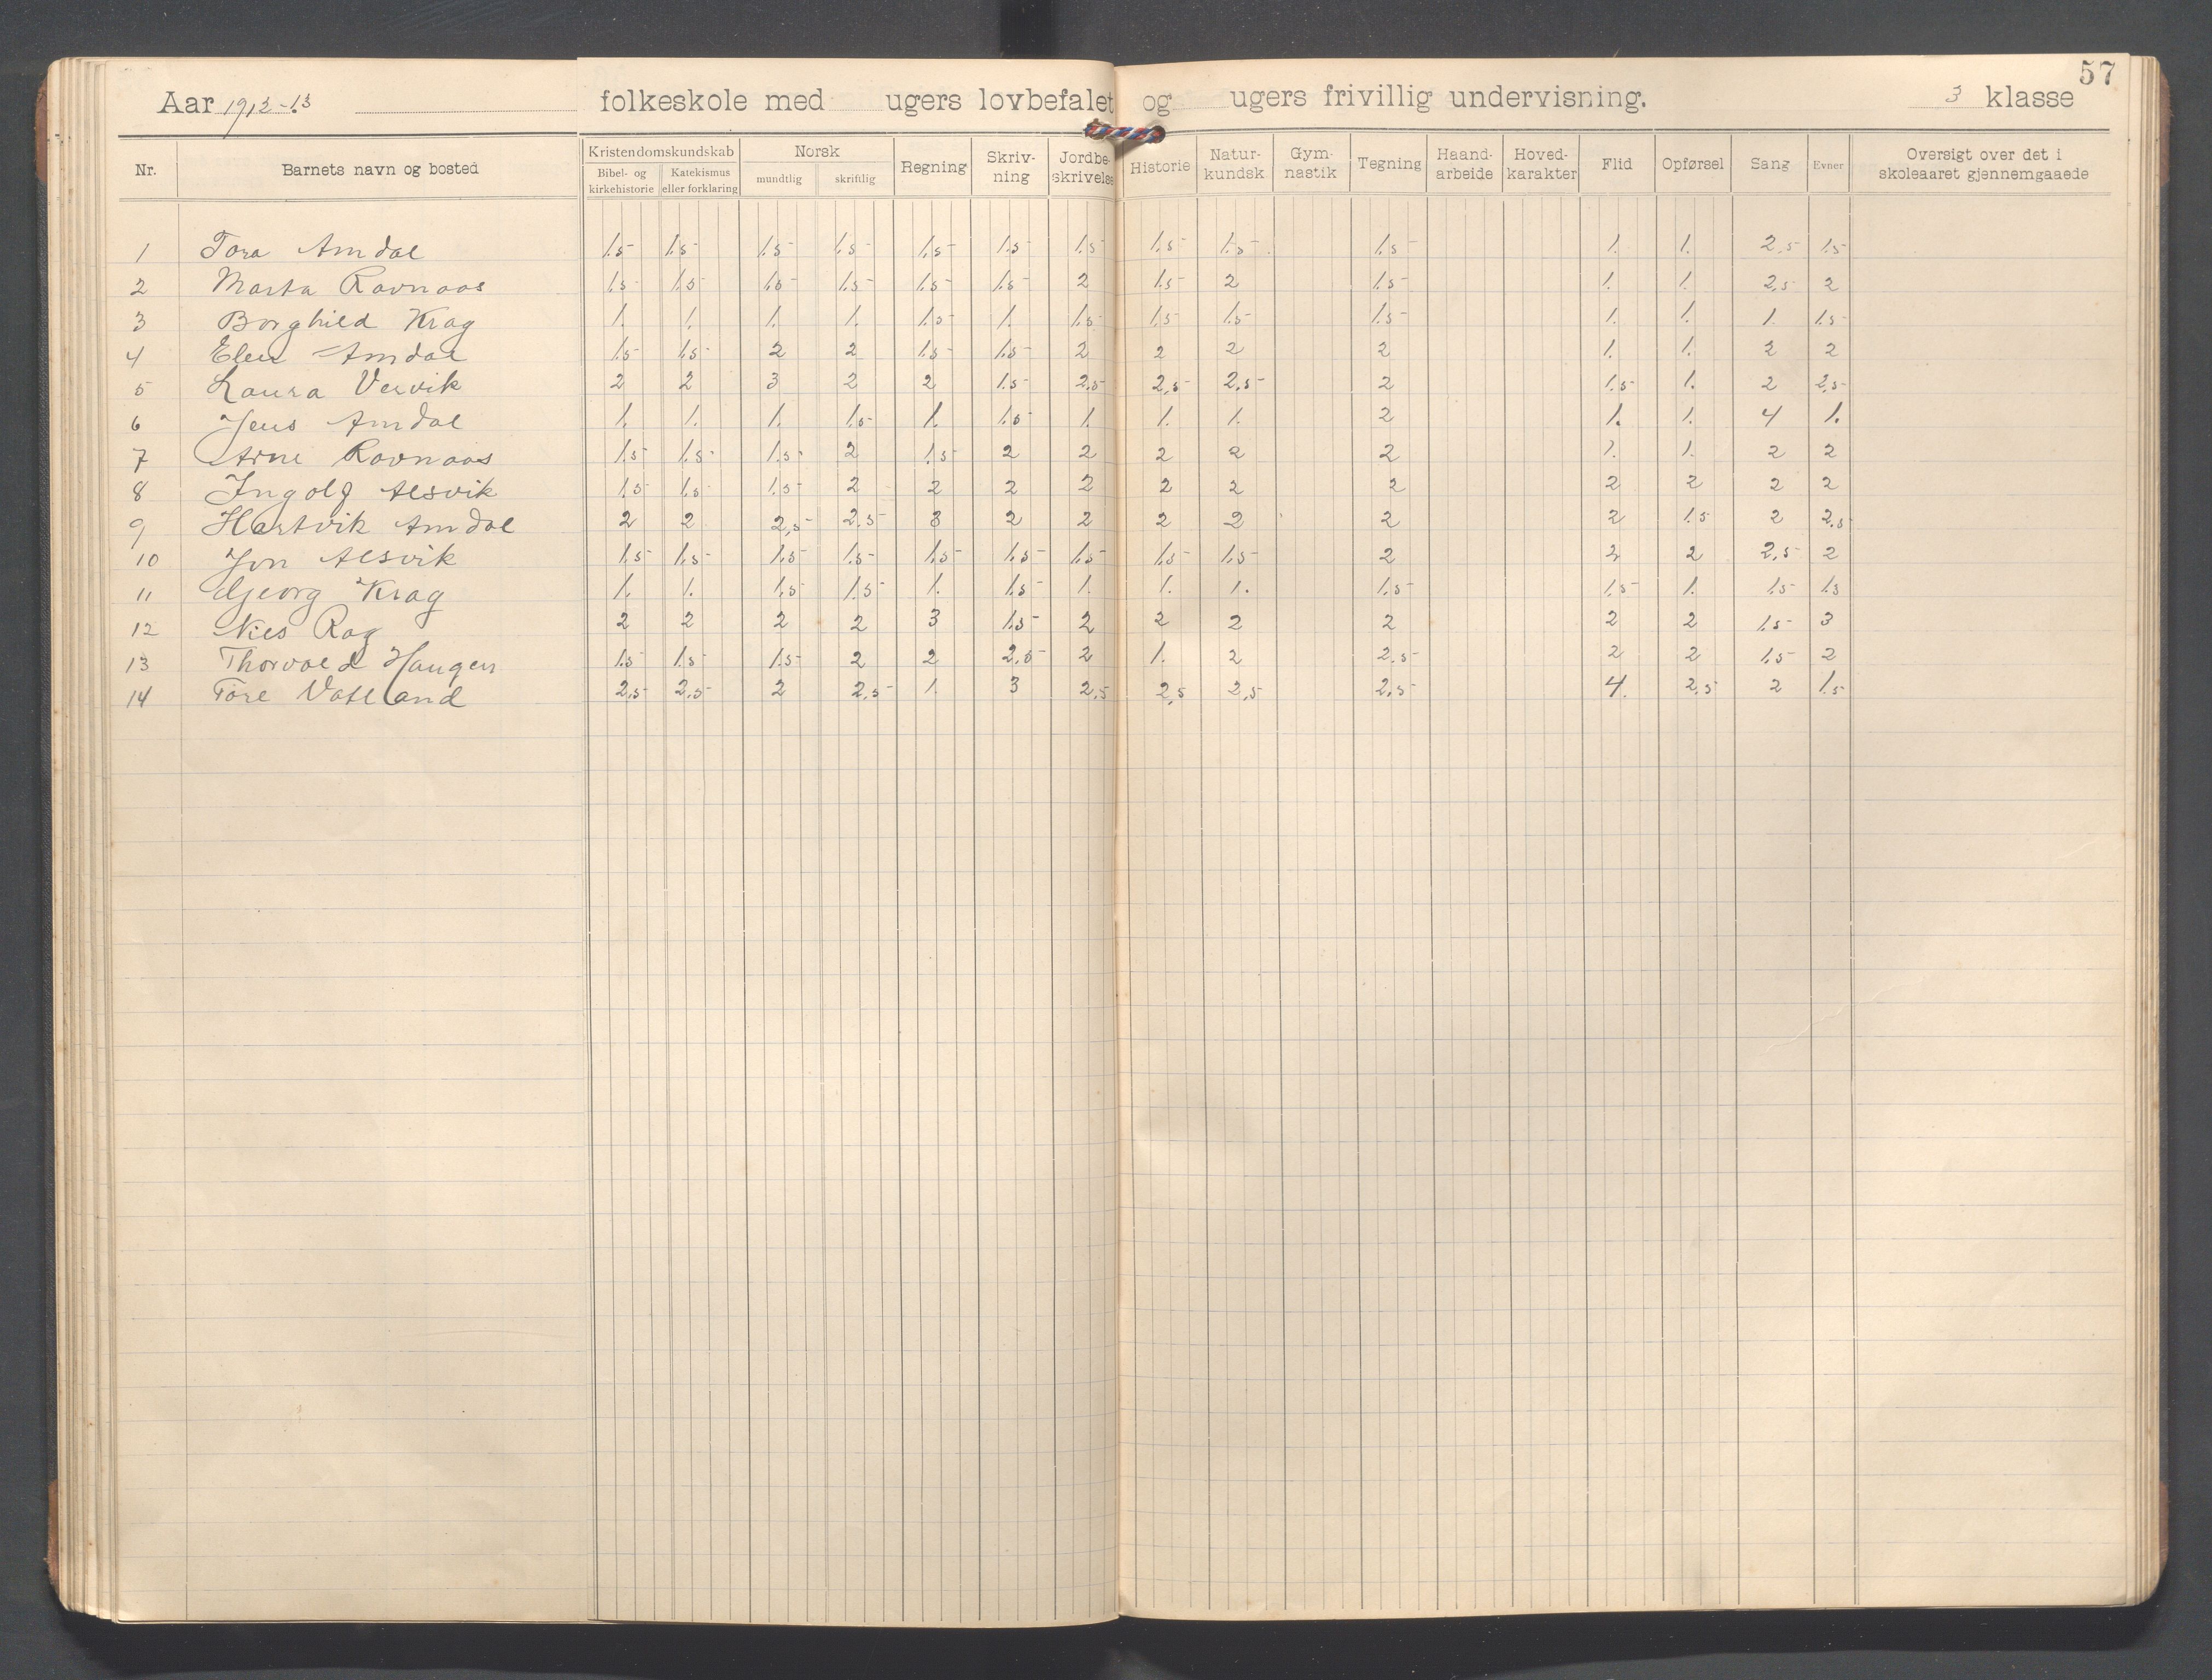 57
Aar 1912-13 folkeskole med ugers lovbefalet og ugers frivillig undervisning. 3 klasse
Nr. Barnets navn og bosted Kristendomskundskab Bibel- og kirkehistorie Katekismus eller forklaring Norsk mundtlig skriftlig Regning Skriv-ning Jordbe-skrivelse Historie Natur-kundsk Gym-nastik Tegning Haand-arbeide Hoved-karakter Flid Opførsel Sang Evner Oversigt over det i skoleaaret gjennemgaaede
1 Tora Amdal 1.5 1.5 1.5 1.5 1.5 1.5 1.5 1.5 1.5 1.5 1. 1. 2.5 1.5
2 Marta Ravnaas 1.5 1.5 1.5 1.5 1.5 1.5 2 1.5 2 1.5 1. 1. 2.5 2
3 Borghild Krag 1. 1. 1. 1. 1.5 1. 1.5 1.5 1.5 1.5 1. 1. 1. 1.5
4 Elen Amdal 1.5 1.5 2 2 1.5 1.5 2 2 2 2 1. 1. 2 2
5 Laura Vervik 2 2 3 2 2 1.5 2.5 2.5 2.5 2 1.5 1. 2 2.5
6 Jens Amdal 1. 1. 1. 1.5 1. 1.5 1. 1. 1. 2 1. 1. 4 1.
7 Arne Ravnaas 1.5 1.5 1.5 2 1.5 2 2 2 2 2 1. 1. 2 2
8 Ingolf Alsvik 1.5 1.5 1.5 2 2 2 2 2 2 2 2 2 2 2
9 Hartvik Amdal 2 2 2.5 2.5 3 2 2 2 2 2 2 1.5 2 2.5
10 Jon Alsvik 1.5 1.5 1.5 1.5 1.5 1.5 1.5 1.5 1.5 2 2 2 2.5 2
11 Georg Krag 1. 1. 1.5 1.5 1. 1.5 1. 1. 1. 1.5 1.5 1. 1.5 1.5
12 Nils Rag 2 2 2 2 3 1.5 2 2 2 2 2 2 1.5 3
13 Thorvald Haugen 1.5 1.5 1.5 2 2 2.5 2 1. 2 2.5 2 2 1.5 2
14 Tore Vatland 2.5 2.5 2 2.5 1. 3 2.5 2.5 2.5 2.5 4. 2.5 2 1.5